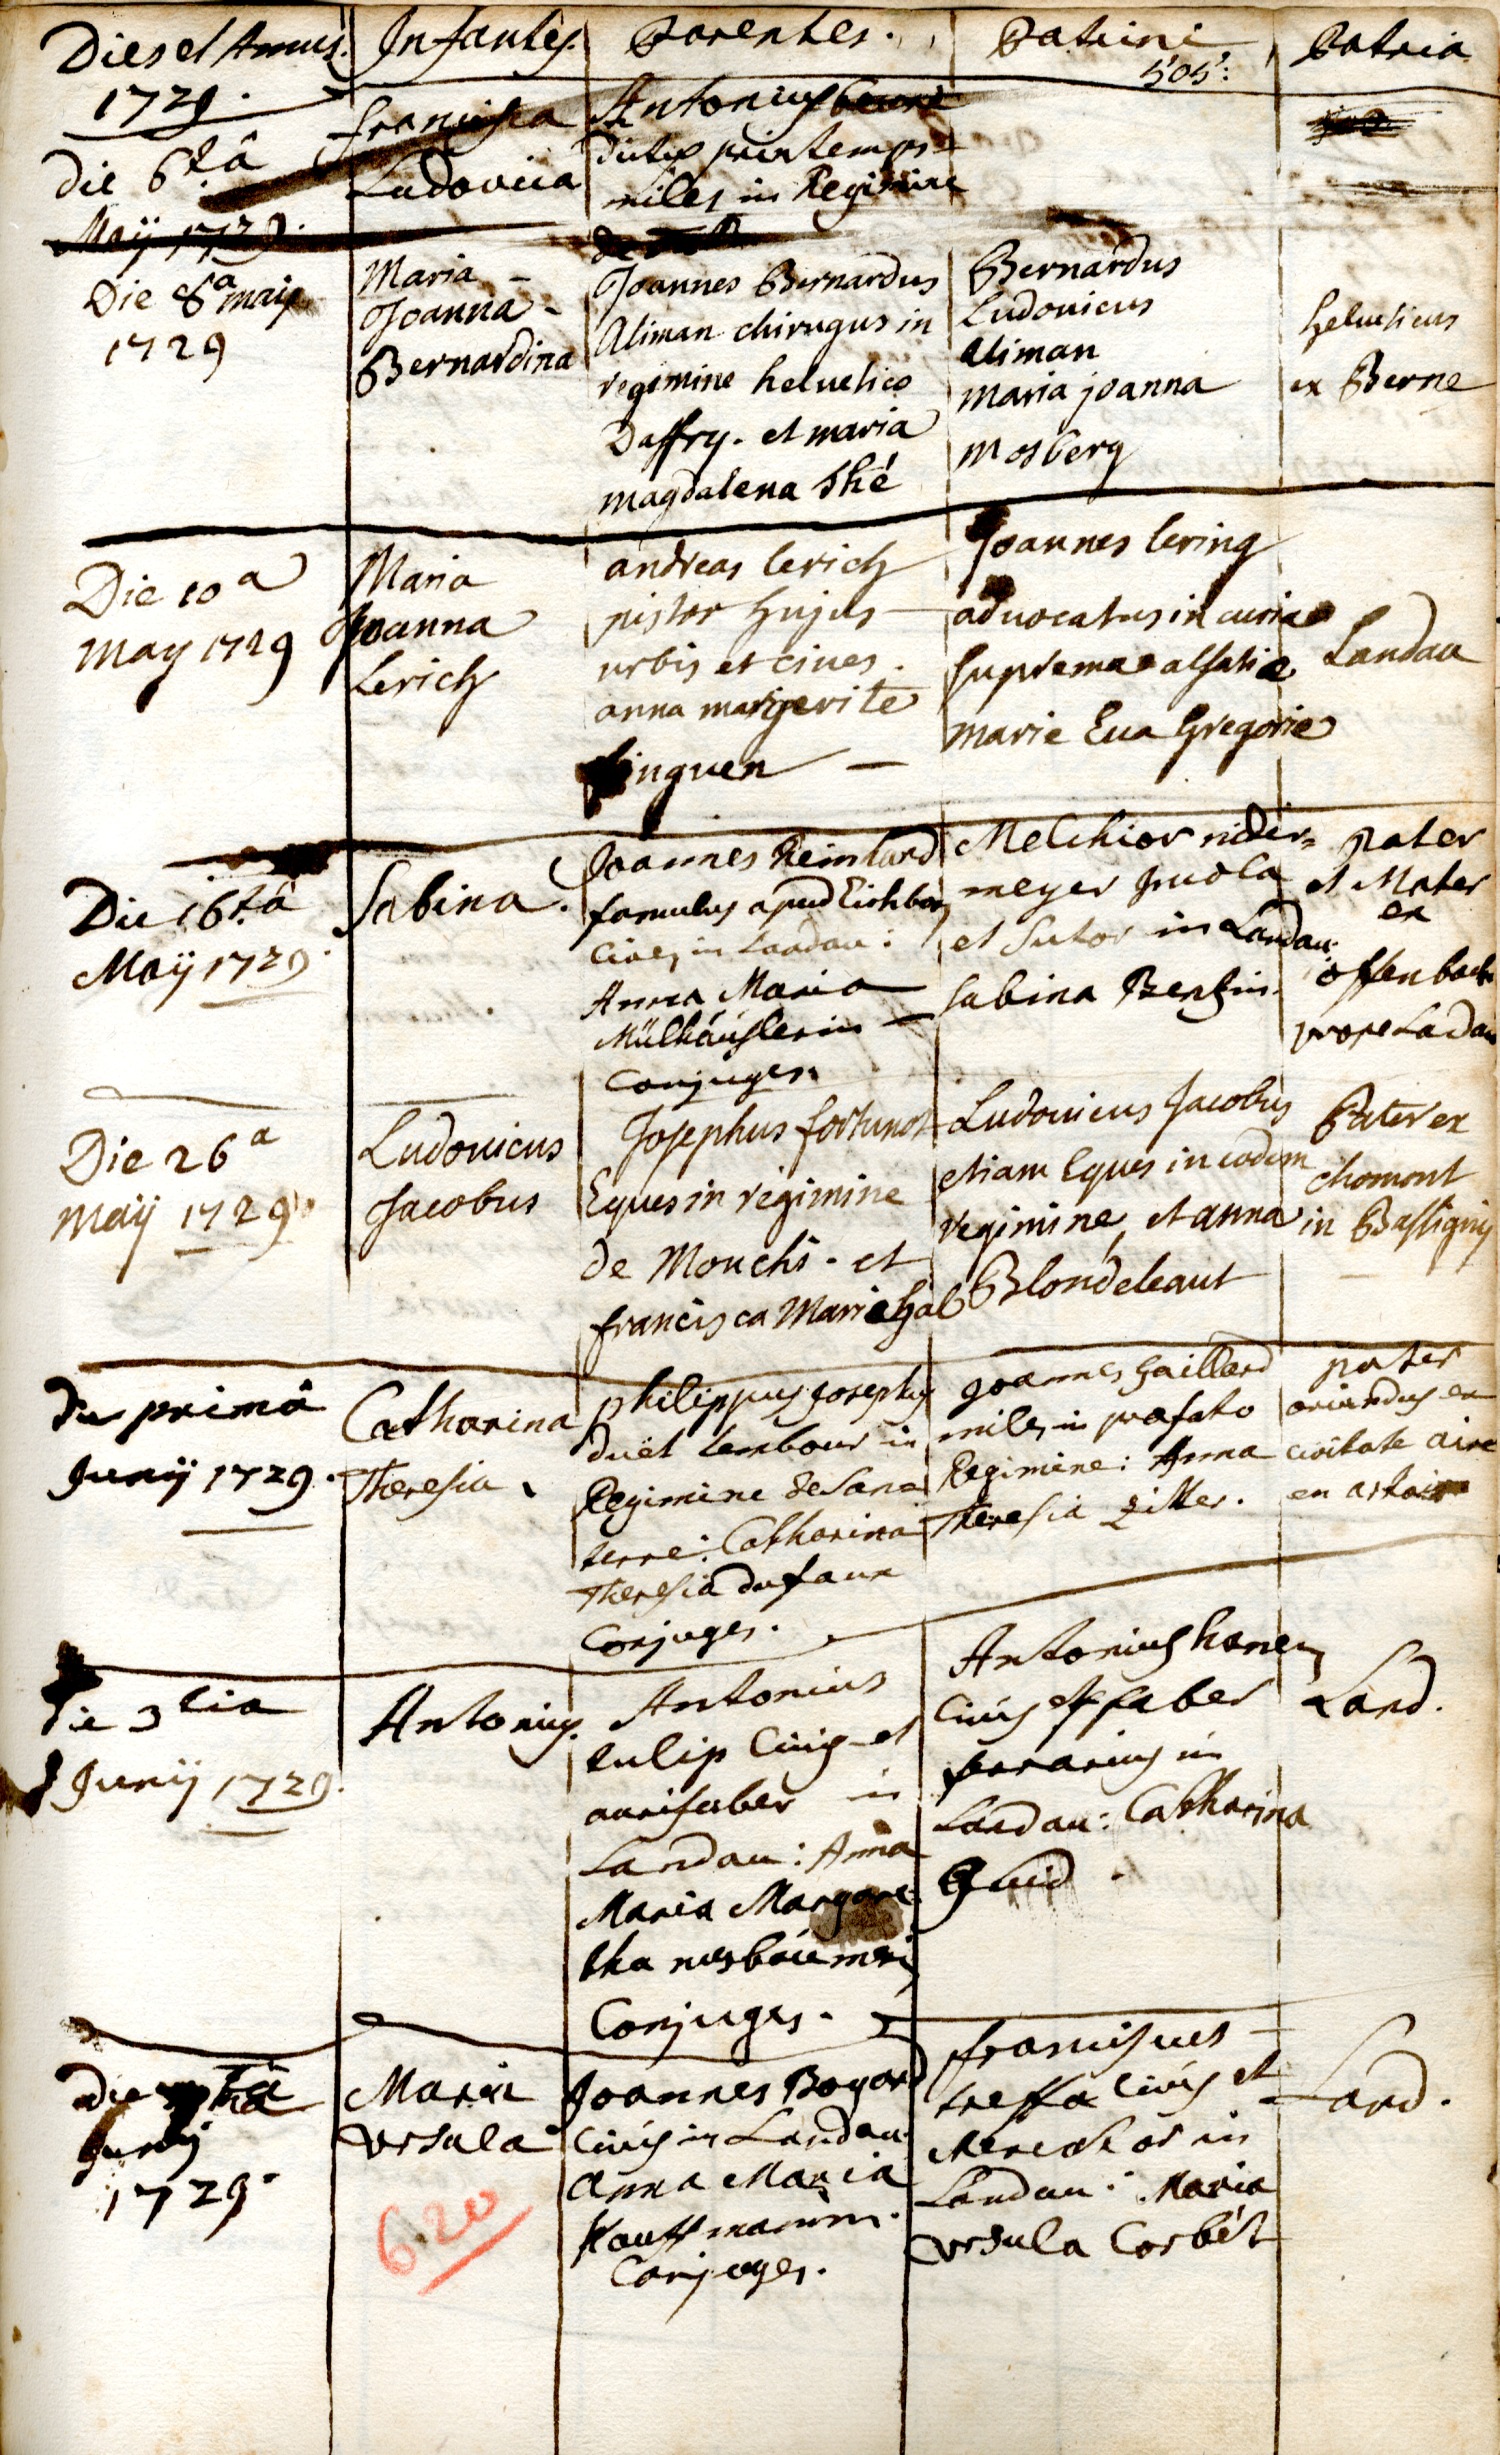 Dies et Annus. Infantes. Parentes. Patrini Patria
505:
1729.
die 6tâ
Maÿ 1729.
francisca
Ludovica
Antonius
dictus printemps
miles in Regimine
de
Die 8a maij
1729
Maria
Joanna
Bernardina
Joannes Bernardus
Aliman chirugus in
regimine helvetico
Daffry. et maria
magdalena Thé
Bernardus
Ludovicus
Aliman
maria joanna
Mosberg
helveticus
ex Berne
Die 10a
May 1729
Maria
Joanna
Lerich
andreas lerich
pistor hujus
urbis et cives.
anna margerite
finguen
Joannes lering
advocatus in curia
supremae alsatiae
marie Eva Gregorie
Landau
Die 16tâ
Maÿ 1729.
Sabina.
Joannes Reinhard
famulus apud Eichborn
Cives in Landau:
Anna Maria
Mülhäuslerin
Conjuges.
Melchior nider=
meyer incola
et Sutor in Landau:
Sabina
pater
et Mater
ex
offenbach
prope Ladau
Die 26a
Maÿ 1729.
Ludovicus
Jacobus
Josephus fortunot
Eques in regimine
de Mouchi. et
francisca Marichal
Ludovicus Jacobus
etiam Eques in eodem
regimine, et anna
Blondeleaut
Pater ex
chomont
in Bassigny
Die primâ
Junij 1729.
Catharina
Theresia.
philippus Josephus
duët tembour in
Regimine de Sana
terre: Catharina
Theresia dufaux
Conjuges.
Joannes Gaillard
miles in praefato
Regimine: Anna
Theresia Zitter.
pater
oriundus ex
civitate aire
en artois
Die 3tia
Junij 1729.
Antonius.
Antonius
tulip Civis et
aurifaber in
Landau: Anna
Maria Margare
tha nusbäumerin
Conjuges.
Antonius hanen
Civis et faber
ferrarius in
Landau: Catharina
Quid.
Land.
Die
Junij
1729.
Maria
Ursula
Joannes Bogard
Civis in Landau
Anna Maria
Kauffmannin.
Conjuges.
franciscus
treffa Civis et
Mercator in
Landau: Maria
Ursula Corbét
Land.
6.20